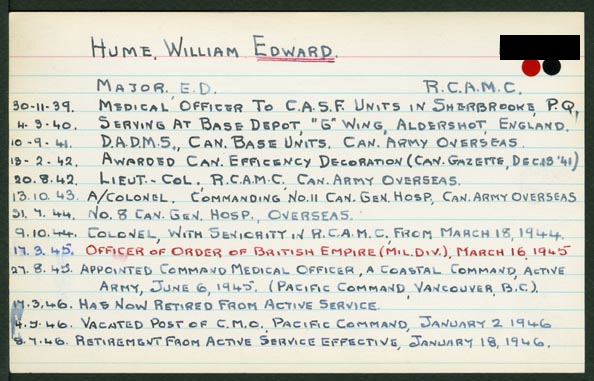 HUME, WILLIAM EDWARD.
MAJOR. E.D. R.C.A.M.C.
30-11-39. MEDICAL OFFICER TO C.A.S.F. UNITS IN SHERBROOKE, P.Q.,
4-3-40. SERVING AT BASE DEPOT, "G" WING, ALDERSHOT, ENGLAND.
10-9-41. D.A.D.M.S., CAN. BASE UNITS. CAN. ARMY OVERSEAS.
13-2-42. AWARDED CAN. EFFICENCY DECORATION (CAN. GAZETTE, DEC. 13 '41)
20.8.42. LIEUT.-COL. R.C.A.M.C, CAN. ARMY OVERSEAS.
13.10.43. A/COLONEL. COMMANDING NO.11 CAN. GEN. HOSP, CAN. ARMY OVERSEAS
31.7.44. NO. 8 CAN. GEN. HOSP., OVERSEAS.
9.10.44. COLONEL, WITH SENIORITY IN R.C.A.M.C, FROM MARCH 18, 1944.
17.3.45. OFFICER OF ORDER OF BRITISH EMPIRE (MIL. DIV.), MARCH 16, 1945
27.8.45. APPOINTED COMMAND MEDICAL OFFICER, A COASTAL COMMAND, ACTIVE
ARMY, JUNE 6, 1945. (PACIFIC COMMAND, VANCOUVER, B.C.)
.3.46. HAS NOW RETIRED FROM ACTIVE SERVICE.
4.5.46. VACATED POST OF C.M.O., PACIFIC COMMAND, JANUARY 2 1946
8.7.46. RETIREMENT FROM ACTIVE SERVICE EFFECTIVE, JANUARY 18, 1946.